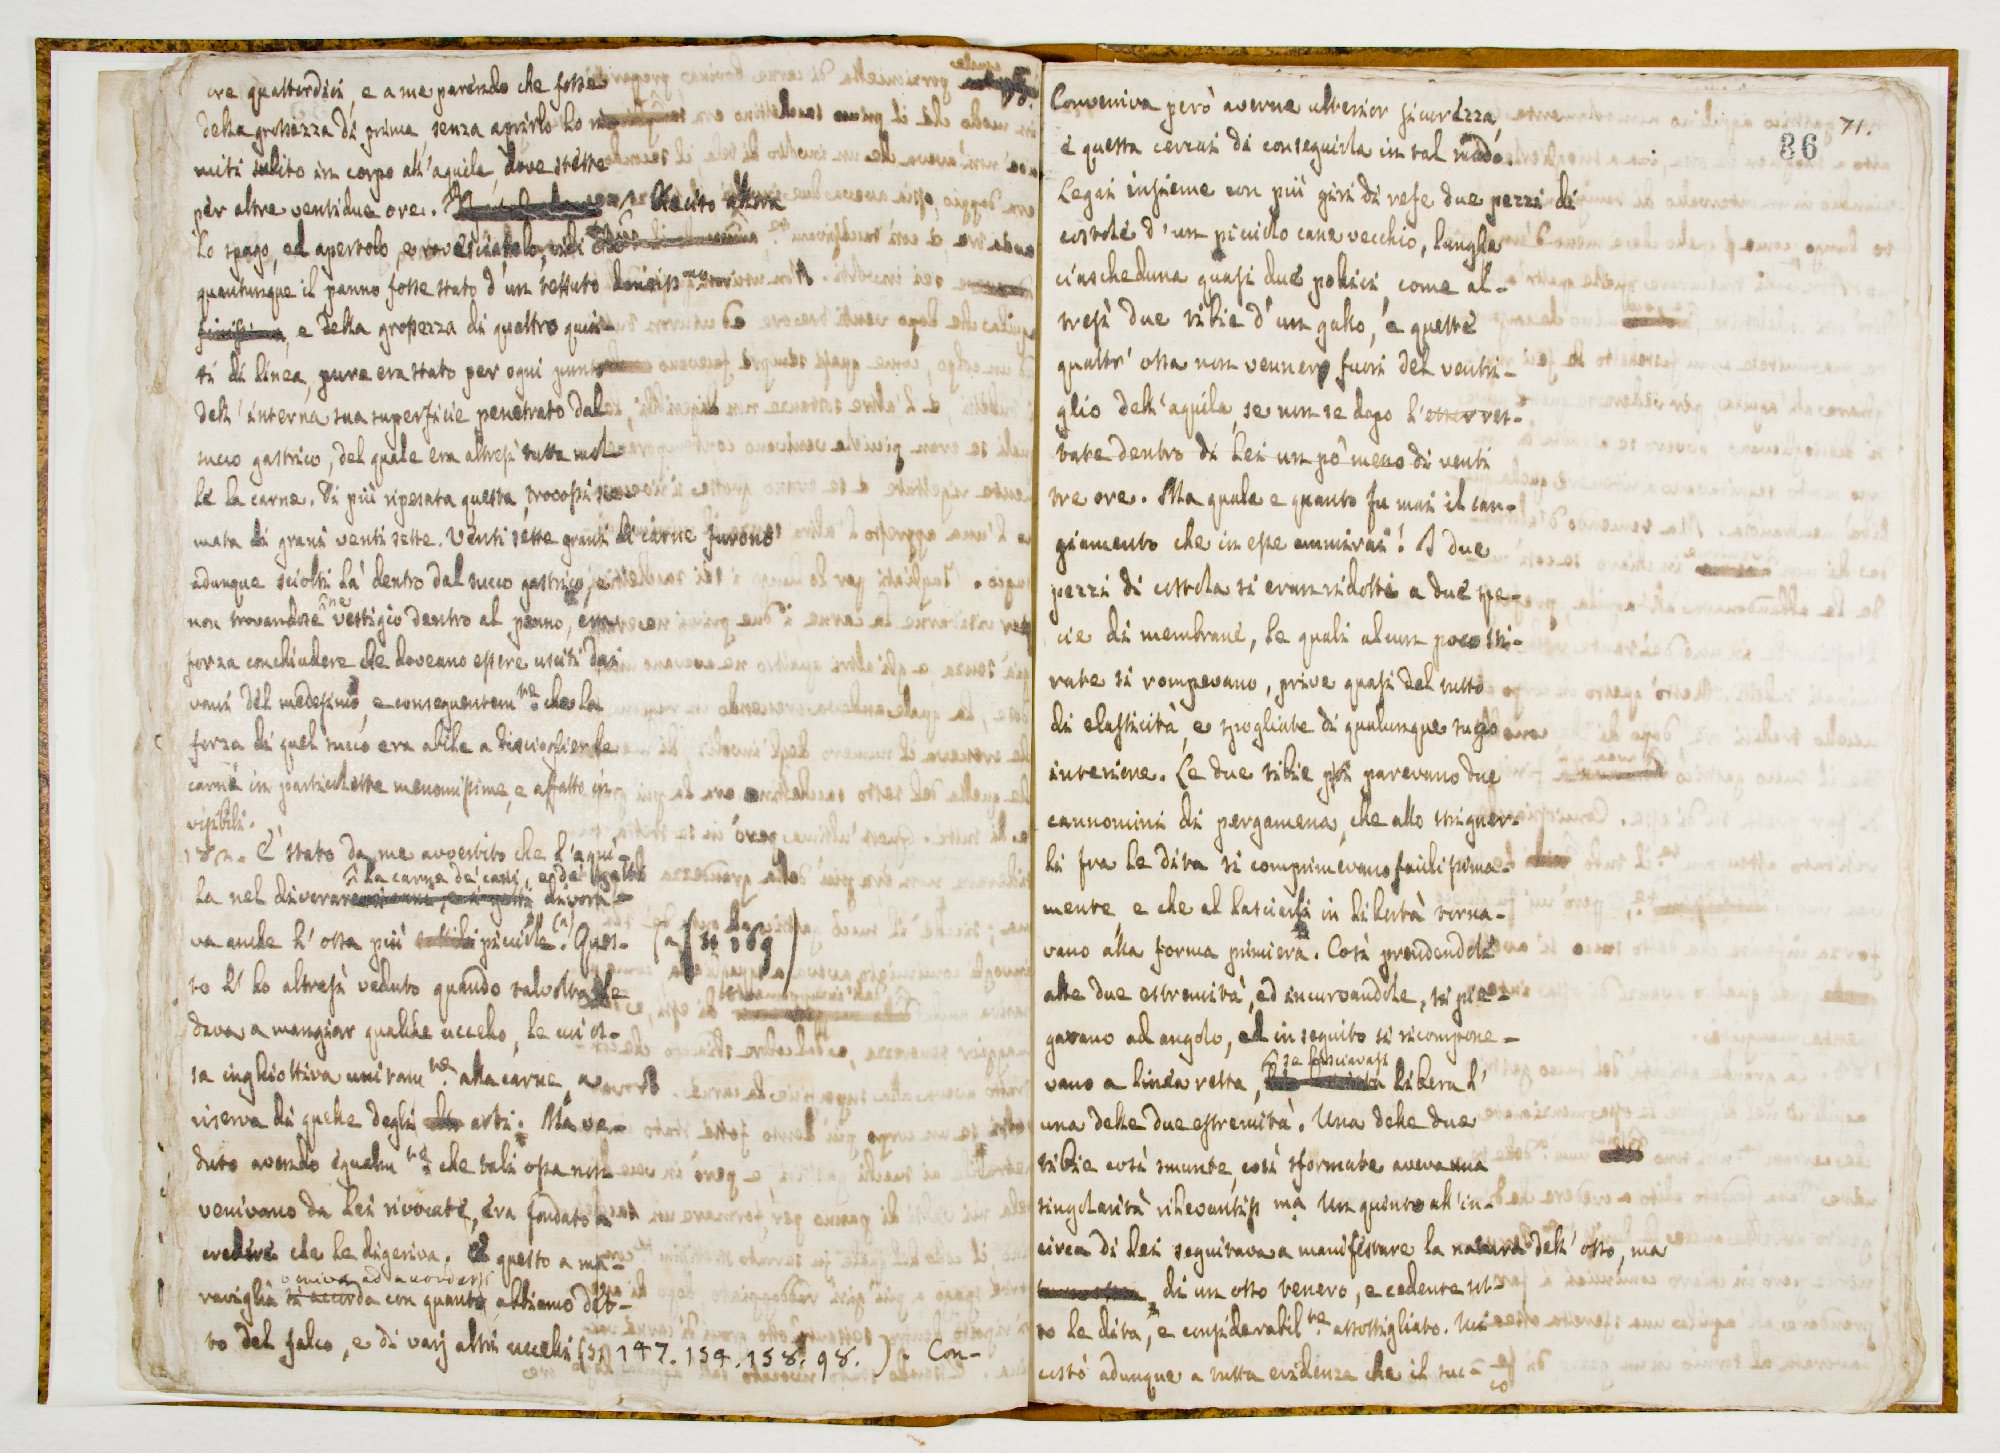 ore quattordici, e a me parendo che fosse
della grossezza di prima, senza aprirlo lo ri-
misi subito in corpo all'aquila, dove stette
per altre ventidue ore. Recito allora
lo spago, ed apertolo, e rovesciatolo, vidi che
quantunque il panno fosse stato d'un tessuto densiss.mo
finissimo, e della grossezza di quattro quin-
ti di linea, pure era stato per ogni punto
dell'interna sua superficie penetrato dal
succo gastrico, del quale era altresì tutta mol-
le la carne. Di più ripesata questa, trovossi sce-
mata di grani venti sette. Venti sette grani di carne furono
adunque sciolti là dentro dal succo gastrico, e
non trovandose ne vestigio dentro al panno, era
forza conchiudere che doveano essere usciti dai
vani del medesimo, e conseguentem.te che la
forza di quel succo era abile a disciogliere le
carni in particelette menomissime, e affatto in-
visibili.
È stato da me avvertito che l'aqui-
la nel divorare la carne de' cani, e de' gatti divora-
va anche l'ossa più piccole (a). Ques- (a (n 169)
to l'ho altresì veduto quando talvolta le
dava a mangiar qualche uccello, le cui os-
sa inghiottiva unitam.te alla carne, a
riserva di quelle degli arti. Ma ve-
duto avendo egualm.te che tali ossa non
venivano da lei rivocate, era fondato a
credere che le digeriva. E questo a ma-
veniva ad accordarsi
raviglia si accorda con quanto abbiamo det-
to del falco, e di varj altri uccelli (§. 147. 154. 158. 98. ). Con-
71.
86
Conveniva però averne ulterior sicurezza,
e questa cercai di conseguirla in tal modo.
Legai insieme con più giri di refe due pezzi di
costole d'un piccolo cane vecchio, lunghe
ciascheduna quasi due pollici, come al-
tresì due tibie d'un gallo, e queste
quattr'ossa non vennero fuori del ventri-
glio dell'aquila, se non se dopo l'esser res-
tate dentro di lei un pò meno di venti
tre ore. Ma quale e quanto fu mai il can-
giamento che in esse ammirai! I due
pezzi di costola si eran ridotti a due spe-
cie di membrane, le quali alcun poco sti-
rate si rompevano, prive quasi del tutto
di elasticità, e spogliate di qualunque sugo
interiore. Le due tibie poi parevano due
cannoncini di pergamena, che allo stringer-
li fra le dita si comprimevano facilissima-
mente, e che al lasciarli in libertà torna-
vano alla forma primiera. Così prendendole
alle due estremità, ed incurvandole, si pie-
gavano ad angolo, ed in seguito si ricompone-
vano a linea retta, se lasciavasi libera l'
una delle due estremità. Una delle due
tibie così smunte, così sformate aveva una
singolarità rilevantiss.ma Un quinto all'in-
circa di lei seguitava a manifestare la natura dell'osso, ma
di un osso tenero, e cedente sot-
to le dita, e considerabil.te assottigliato. Mi
costò adunque a tutta evidenza che il suc-
co